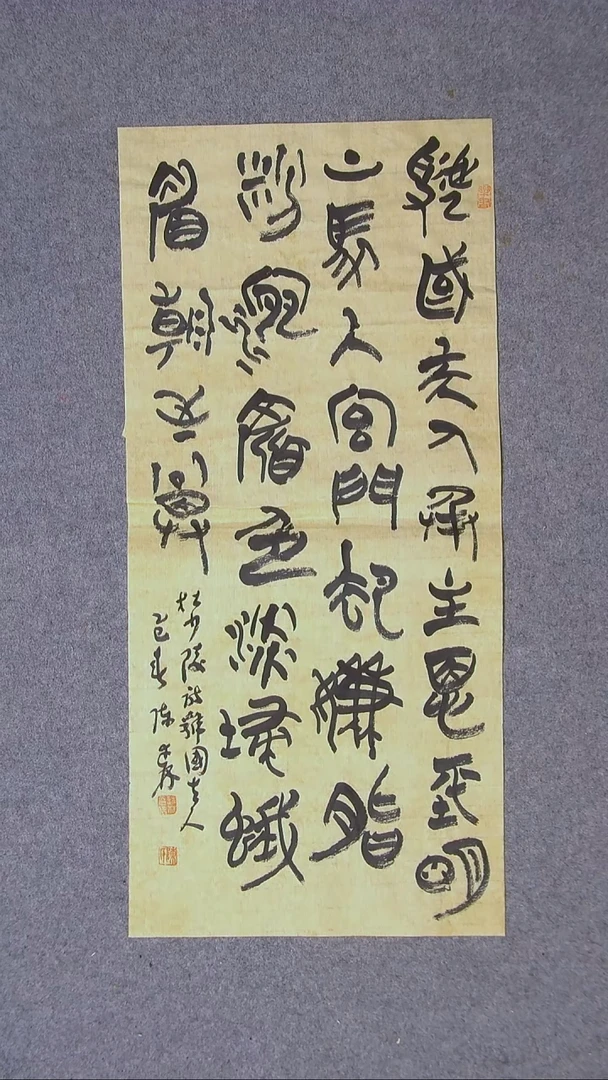 虢國夫人承主恩平明
上馬入宮門卻嫌脂
粉涴顏色淡掃蛾
眉朝至尊
杜少陵詩虢國夫人
乙巳春陳